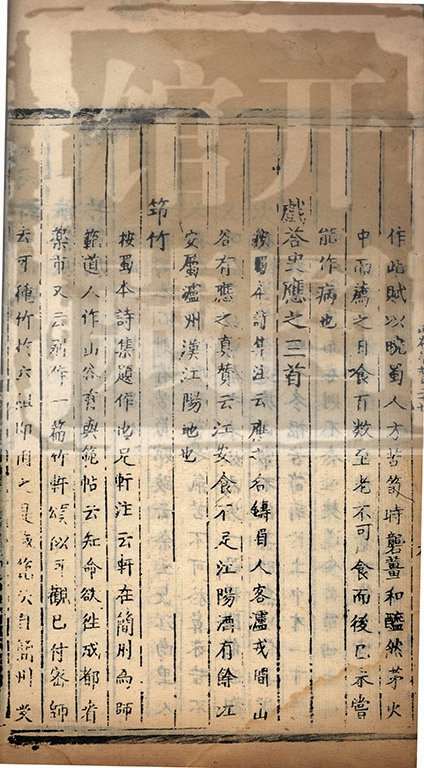 作此賦以曉蜀人方苦筍時礱薑和醯然茅火
中而薦之日食百數至老不可食而後已未嘗
能作病也
戲答史應之三首
按蜀本詩集注云應之名鑄眉人客瀘戎間山
谷有應之真贊云江安食不足江陽酒有餘江
安屬瀘州漢江陽地也
筇竹
按蜀本詩集題作也足軒注云軒在簡州為師
範道人作山谷有與範帖云知命欲往成都者
藥市又云別作一篇竹軒頌似可觀已付密師
云可種竹於六祖師自簡州